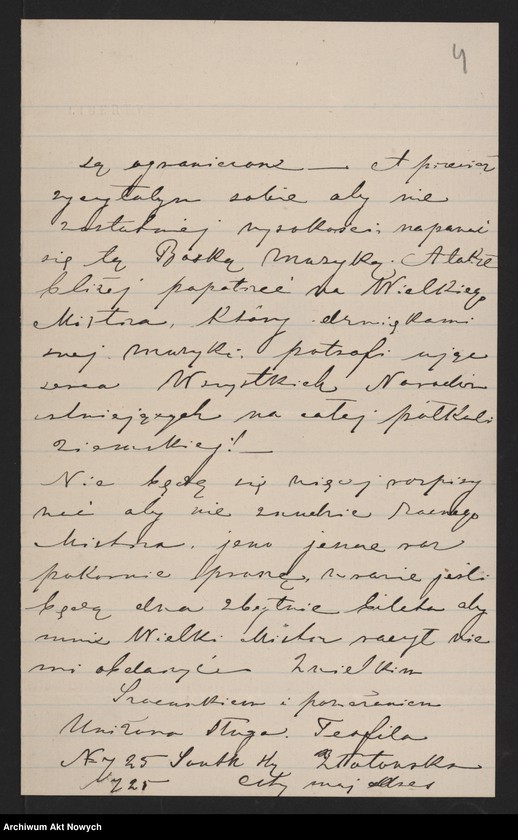 4
LIBERTY
są ograniczone — A przecież
życzyłabym sobie aby nie
z ostatniej wysokości napawać
się tą Boską Muzyką. A także
bliżej popatrzeć na Wielkiego
Mistrza, który dzwiękami
swej muzyki potrafi ująć
serca Wszystkich Narodów
istniejących na całej półkuli
ziemskiej! —
Nie będę się więcej rozpisy
wać aby nie znudzić Zacnego
Mistrza, jeno jeszcze raz
pokornie proszę, w razie jeśli
będą dwa zbytnie bileta aby
mnie Wielki Mistrz raczył nie
mi obdarzyć Z wielkim
Szacunkiem i poważaniem
Uniżona sługa. Teofila
N 7 25 South Złotowska
N 7 25 City mój adres
Archiwum Akt Nowych